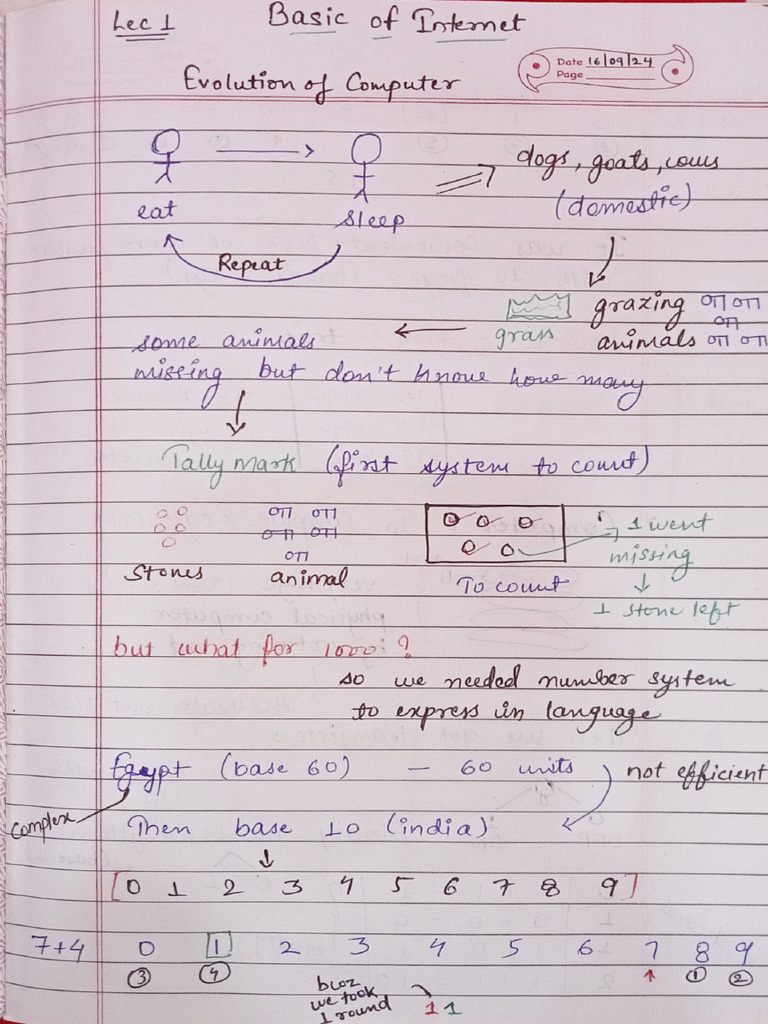 Lec 1 Basic of Internet
Date 16/09/24
Page
Evolution of Computer
dogs, goats, cows
(domestic)
eat sleep
Repeat
grazing
grass animals
some animals
missing but don't know how many
Tally mark (first system to count)
1 went
missing
Stones animal To count
1 stone left
but what for 1000?
so we needed number system
to express in language
Egypt (base 60) - 60 units not efficient
Complex
Then base 10 (india)
[0 1 2 3 4 5 6 7 8 9]
7+4 0 1 2 3 4 5 6 7 8 9
3 4 1 2
bcoz
we took
1 round 1 1